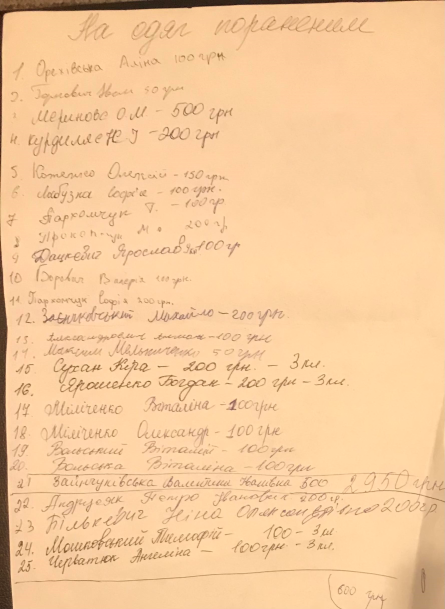 На одяг пораненим
1. Оріхівська Аліна 100 грн
2. Іван 50 грн
Меринова О М - 500 грн
4. І - 200 грн
5. Олексій - 150 грн
6. Лабузка Софія - 100 грн.
7 Пархомчук Т. - 100гр
8 М. 200 гр
9 Дацкевич Ярослав 100гр
10 Валерія 100 грн.
11 Пархомчук Софія 200 грн.
12. Михайло - 200 грн.
13. - 100 грн
14. Максим 50 грн
15. Сухан Кіра - 200 грн. - 3 кл.
16. Ярошенко Богдан - 200 грн - 3 кл.
17 Міліченко Віталіна - 100грн
18. Міліченко Олександр - 100 грн
19. Вольський Віталій - 100 грн
20. Вольська Віталіна - 100 грн
21 Валентина Іванівна 500 2950 грн
22. Петро Іванович 200 г.
23 Бількевич Ніна Олександрівна 200гр
24. Мошковський Тимофій - 100 - 3 кл.
25. Черватюк Ангеліна - 100 грн - 3 кл.
600 грн